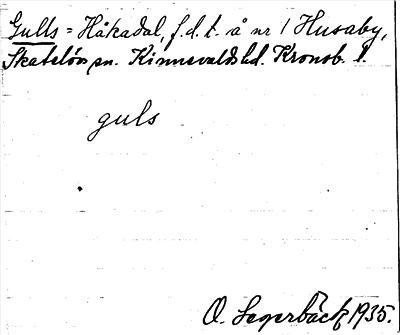 Gulls = Håkadal, f.d.t. å nr 1 Husaby,
Skatelöv sn. Kinnevalds hd. Kronob. l.
guls
O. Segerbäck 1935.